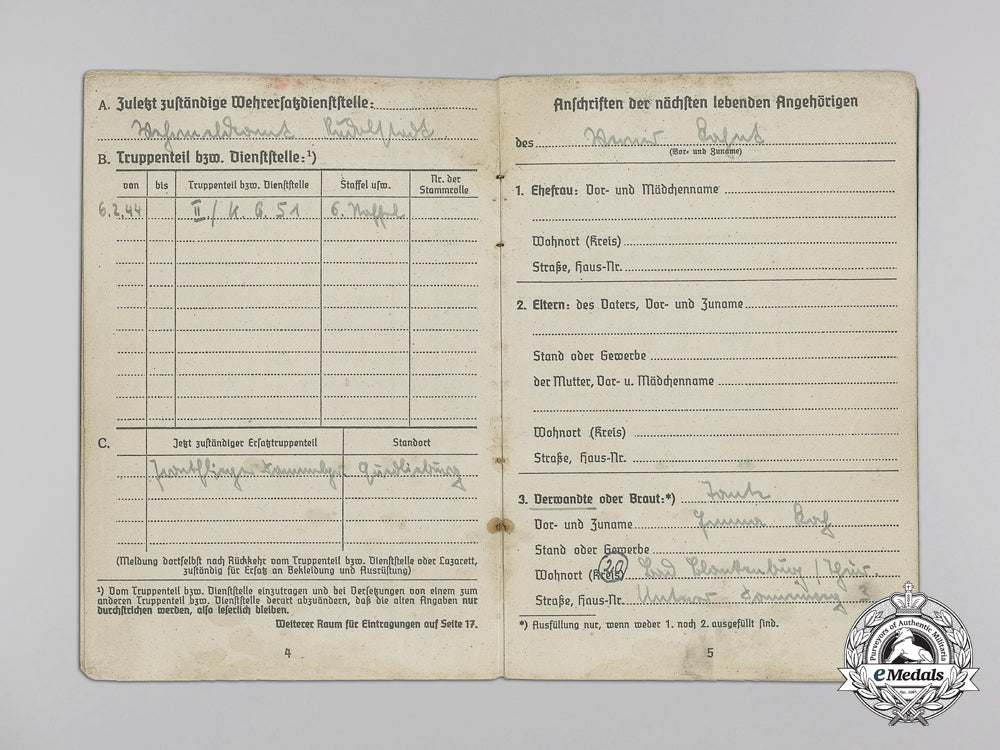 A. Zuletzt zuständige Wehrersatzdienststelle:
Wehrmeldeamt Rudolstadt
B. Truppenteil bzw. Dienststelle:¹)
von bis Truppenteil bzw. Dienststelle Staffel usw. Nr. der Stammrolle
6.2.44 II./K.G.51 6. Staffel
C. Jetzt zuständiger Ersatztruppenteil Standort
Quedlinburg
(Meldung dortselbst nach Rückkehr vom Truppenteil bzw. Dienststelle oder Lazarett,
zuständig für Ersatz an Bekleidung und Ausrüstung)
¹) Vom Truppenteil bzw. Dienststelle einzutragen und bei Versetzungen von einem zum
anderen Truppenteil bzw. Dienststelle derart abzuändern, daß die alten Angaben nur
durchstrichen werden, also leserlich bleiben.
Weiterer Raum für Eintragungen auf Seite 17.
4
Anschriften der nächsten lebenden Angehörigen
des Werner
(Vor- und Zuname)
1. Ehefrau: Vor- und Mädchenname
Wohnort (Kreis)
Straße, Haus-Nr.
2. Eltern: des Vaters, Vor- und Zuname
Stand oder Gewerbe
der Mutter, Vor- u. Mädchenname
Wohnort (Kreis)
Straße, Haus-Nr.
3. Verwandte oder Braut:*) Tante
Vor- und Zuname
Stand oder Gewerbe
Wohnort (Kreis) Bad Blankenburg/Thür.
Straße, Haus-Nr. Unterer
*) Ausfüllung nur, wenn weder 1. noch 2. ausgefüllt sind.
5
Purveyors of Authentic Militaria
eMedals